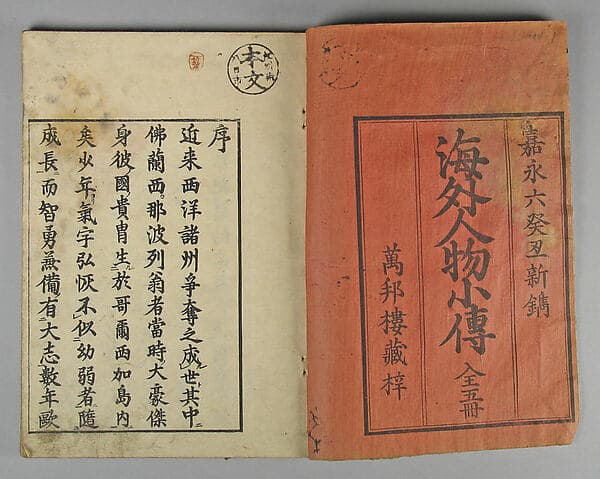 嘉永六癸丑新鐫
海外人物小傳
全五冊
萬邦樓藏梓
本文
序
近来西洋諸州爭奪之成世其中
佛蘭西那波列翁者當時大豪傑
身彼國貴冑生於哥爾西加島内
矣少年氣宇弘恢不似幼弱者隨
成長而智勇兼備有大志數年歐